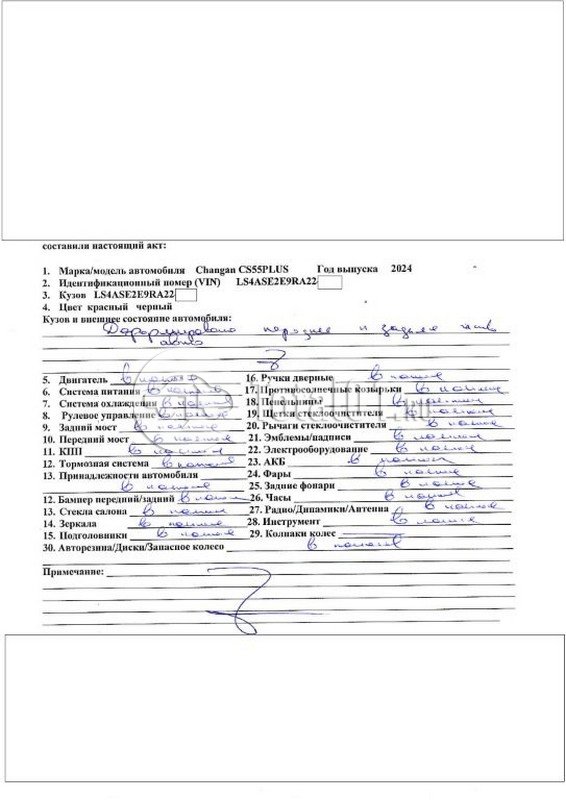 составили настоящий акт:
1. Марка/модель автомобиля Changan CS55PLUS Год выпуска 2024
2. Идентификационный номер (VIN) LS4ASE2E9RA22
3. Кузов LS4ASE2E9RA22
4. Цвет красный черный
Кузов и внешнее состояние автомобиля:
Деформировано переднее и заднее
авто
5. Двигатель в наличии 16. Ручки дверные в наличии
6. Система питания в наличии 17. Противосолнечные козырьки в наличии
7. Система охлаждения в наличии 18. Пепельницы в наличии
8. Рулевое управление в наличии 19. Щетки стеклоочистителя в наличии
9. Задний мост в наличии 20. Рычаги стеклоочистителя в наличии
10. Передний мост в наличии 21. Эмблемы/надписи в наличии
11. КПП в наличии 22. Электрооборудование в наличии
12. Тормозная система в наличии 23. АКБ в наличии
13. Принадлежности автомобиля 24. Фары в наличии
в наличии 25. Задние фонари в наличии
12. Бампер передний/задний в наличии 26. Часы в наличии
13. Стекла салона в наличии 27. Радио/Динамики/Антенна в наличии
14. Зеркала в наличии 28. Инструмент в наличии
15. Подголовники в наличии 29. Колпаки колес
30. Авторезина/Диски/Запасное колесо в наличии
Примечание: